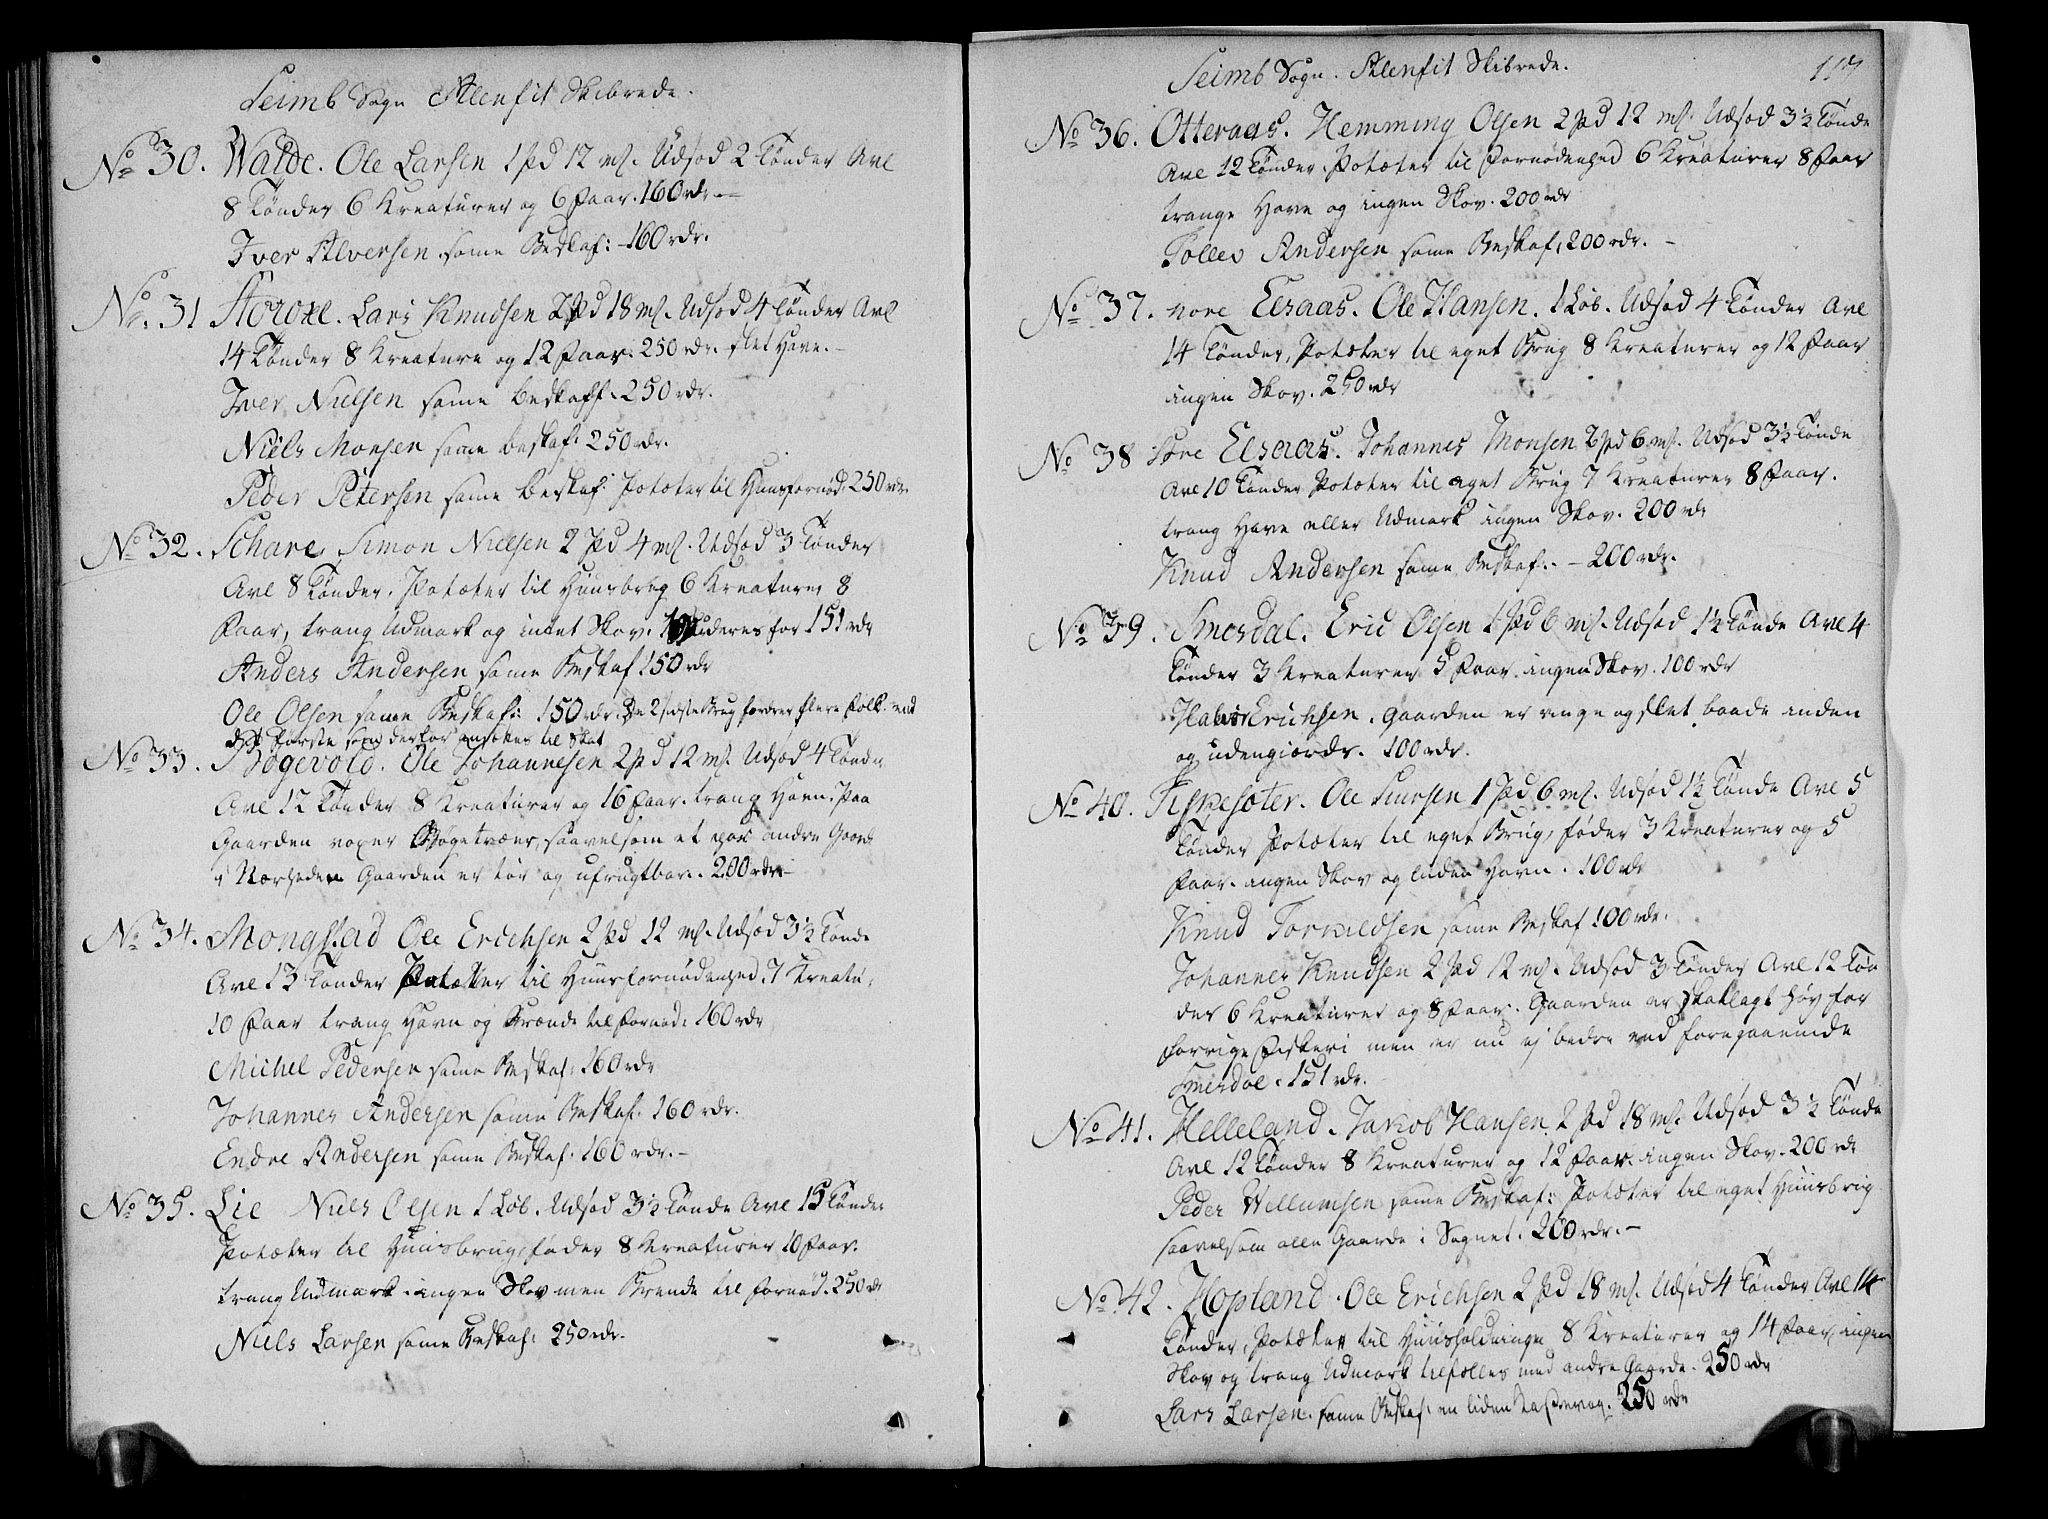 Seimb Sogn Alenfit Skibrede.
No 30. Walde. Ole Larsen 1 Pd 12 mk. Udsød 2 Tønder Avl
8 Tønder 6 Kreaturer og 6 Faar. 160 rdr.
Iver Alversen same Beskaf: 160 rdr.
No. 31 Lars Knudsen 2 Pd 18 mk. Udsød 4 Tønder Avl
14 Tønder 8 Kreature og 12 Faar. 250 rdr. slet Have.
Iver Nielsen same beskaff. 250 rdr.
Niels Monsen same beskaf: 250 rdr.
Peder Petersen same beskaf: Potæter til Huusfornød: 250 rdr
No 32. Schare Simon Nielsen 2 Pd 4 mk. Udsød 3 Tønder
Avl 8 Tønder. Potæter til Huusbrug 6 Kreaturer 8
Faar, trang Udmark og intet Skov. for 151 rdr
Anders Andersen same Beskaf 150 rdr
Ole Olsen same Beskaf: 150 rdr. De 2 sidste Brug fordrer flere Folk end
det første som derfor ansættes til Skat
No 33. Bøgevold. Ole Johannesen 2 Pd 12 mk. Udsød 4 Tønder
Avl 12 Tønder 8 Kreaturer og 16 Faar. trang Havn. Paa
Gaarden voxer Bøgetræer, saavelsom et par andre Gaarde
i Nærheden Gaarden er tør og ufrugtbar. 200 rdr.
No 34. Mongstad Ole Erichsen 2 Pd 12 mk. Udsød 3½ Tønde
Avl 13 Tønder Potætter til Huusfornødenhed. 7 Kreatu:
10 Faar trang Havn og Brænde til Fornød: 160 rdr
Michel Pedersen same Beskaf: 160 rdr
Johannes Andersen same Beskaf: 160 rdr.
Endre Andersen same Beskaf: 160 rdr.
No 35. Lie Niels Olsen 1 Løb. Udsød 3½ Tønde Avl 15 Tønder
Potæter til Huusbrug, føder 8 Kreaturer 10 Faar.
trang Udmark. ingen Skov men Brende til fornød. 250 rdr
Niels Larsen same Beskaf: 250 rdr.
Seimb Sogn. Alenfit Skibrede. 117
No 36. Otteraas. Hemming Olsen 2 Pd 12 mk. Udsød 3½ Tønde
Avl 12 Tønder. Potæter til Fornødenhed 6 Kreaturer 8 Faar
trange Have og ingen Skov. 200 rdr
Tollev Andersen same Beskaf, 200 rdr.
No 37. nore Elsaas. Ole Hansen. 1 Løb. Udsød 4 Tønder Avl
14 Tønder, Potæter til eget Brug 8 Kreaturer og 12 Faar
ingen Skov. 250 rdr
No 38 søre Elsaas. Johannes Monsen 2 Pd 6 mk. Udsød 3½ Tønde
Avl 10 Tønder Potæter til eget Brug 7 Kreaturer 8 Faar.
trang Have eller Udmark ingen Skov. 200 rdr
Knud Andersen same Beskaf: 200 rdr.
No 39. Smørdal. Eric Olsen 1 Pd 6 mk. Udsød 1½ Tønde Avl 4
Tønder 3 Kreaturer 5 Faar. ingen Skov. 100 rdr
Erichsen. Gaarden er ringe og slet baade inden
og udengiærds. 100 rdr.
No 40. Fiskesæter. Ole Siursen 1 Pd 6 mk. Udsød 1½ Tønde Avl 5
Tønder Potæter til eget Brug, føder 3 Kreaturer og 5
Faar. ingen Skov og liden Havn. 100 rdr
Knud Torkildsen same Beskaf 100 rdr.
Johannes Knudsen 2 Pd 12 mk. Udsød 3 Tønder Avl 12 Tøn
der 6 Kreaturer og 8 Faar. Gaarden er skatlagt høy for
forrige Fiskeri men er nu ej bedre end foregaaende
151 rdr.
No 41. Helleland. Jakob Hansen 2 Pd 18 mk. Udsød 3½ Tønde
Avl 12 Tønder 8 Kreaturer og 12 Faar. ingen Skov. 200 rdr
Peder Willumsen same Beskaf: Potæter til eget Huusbrug
saavelsom alle Gaarde i Sognet. 200 rdr.
No. 42. Hopland. Ole Erichsen 2 Pd 18 mk. Udsød 4 Tønder Avl 14
Tønder, Potæter til Huusholdninge 8 Kreaturer og 14 Faar, ingen
Skov og trang Udmark tilfælles med andre Gaarde. 250 rdr
Lars Larsen. same Beskaf: en liden 250 rdr